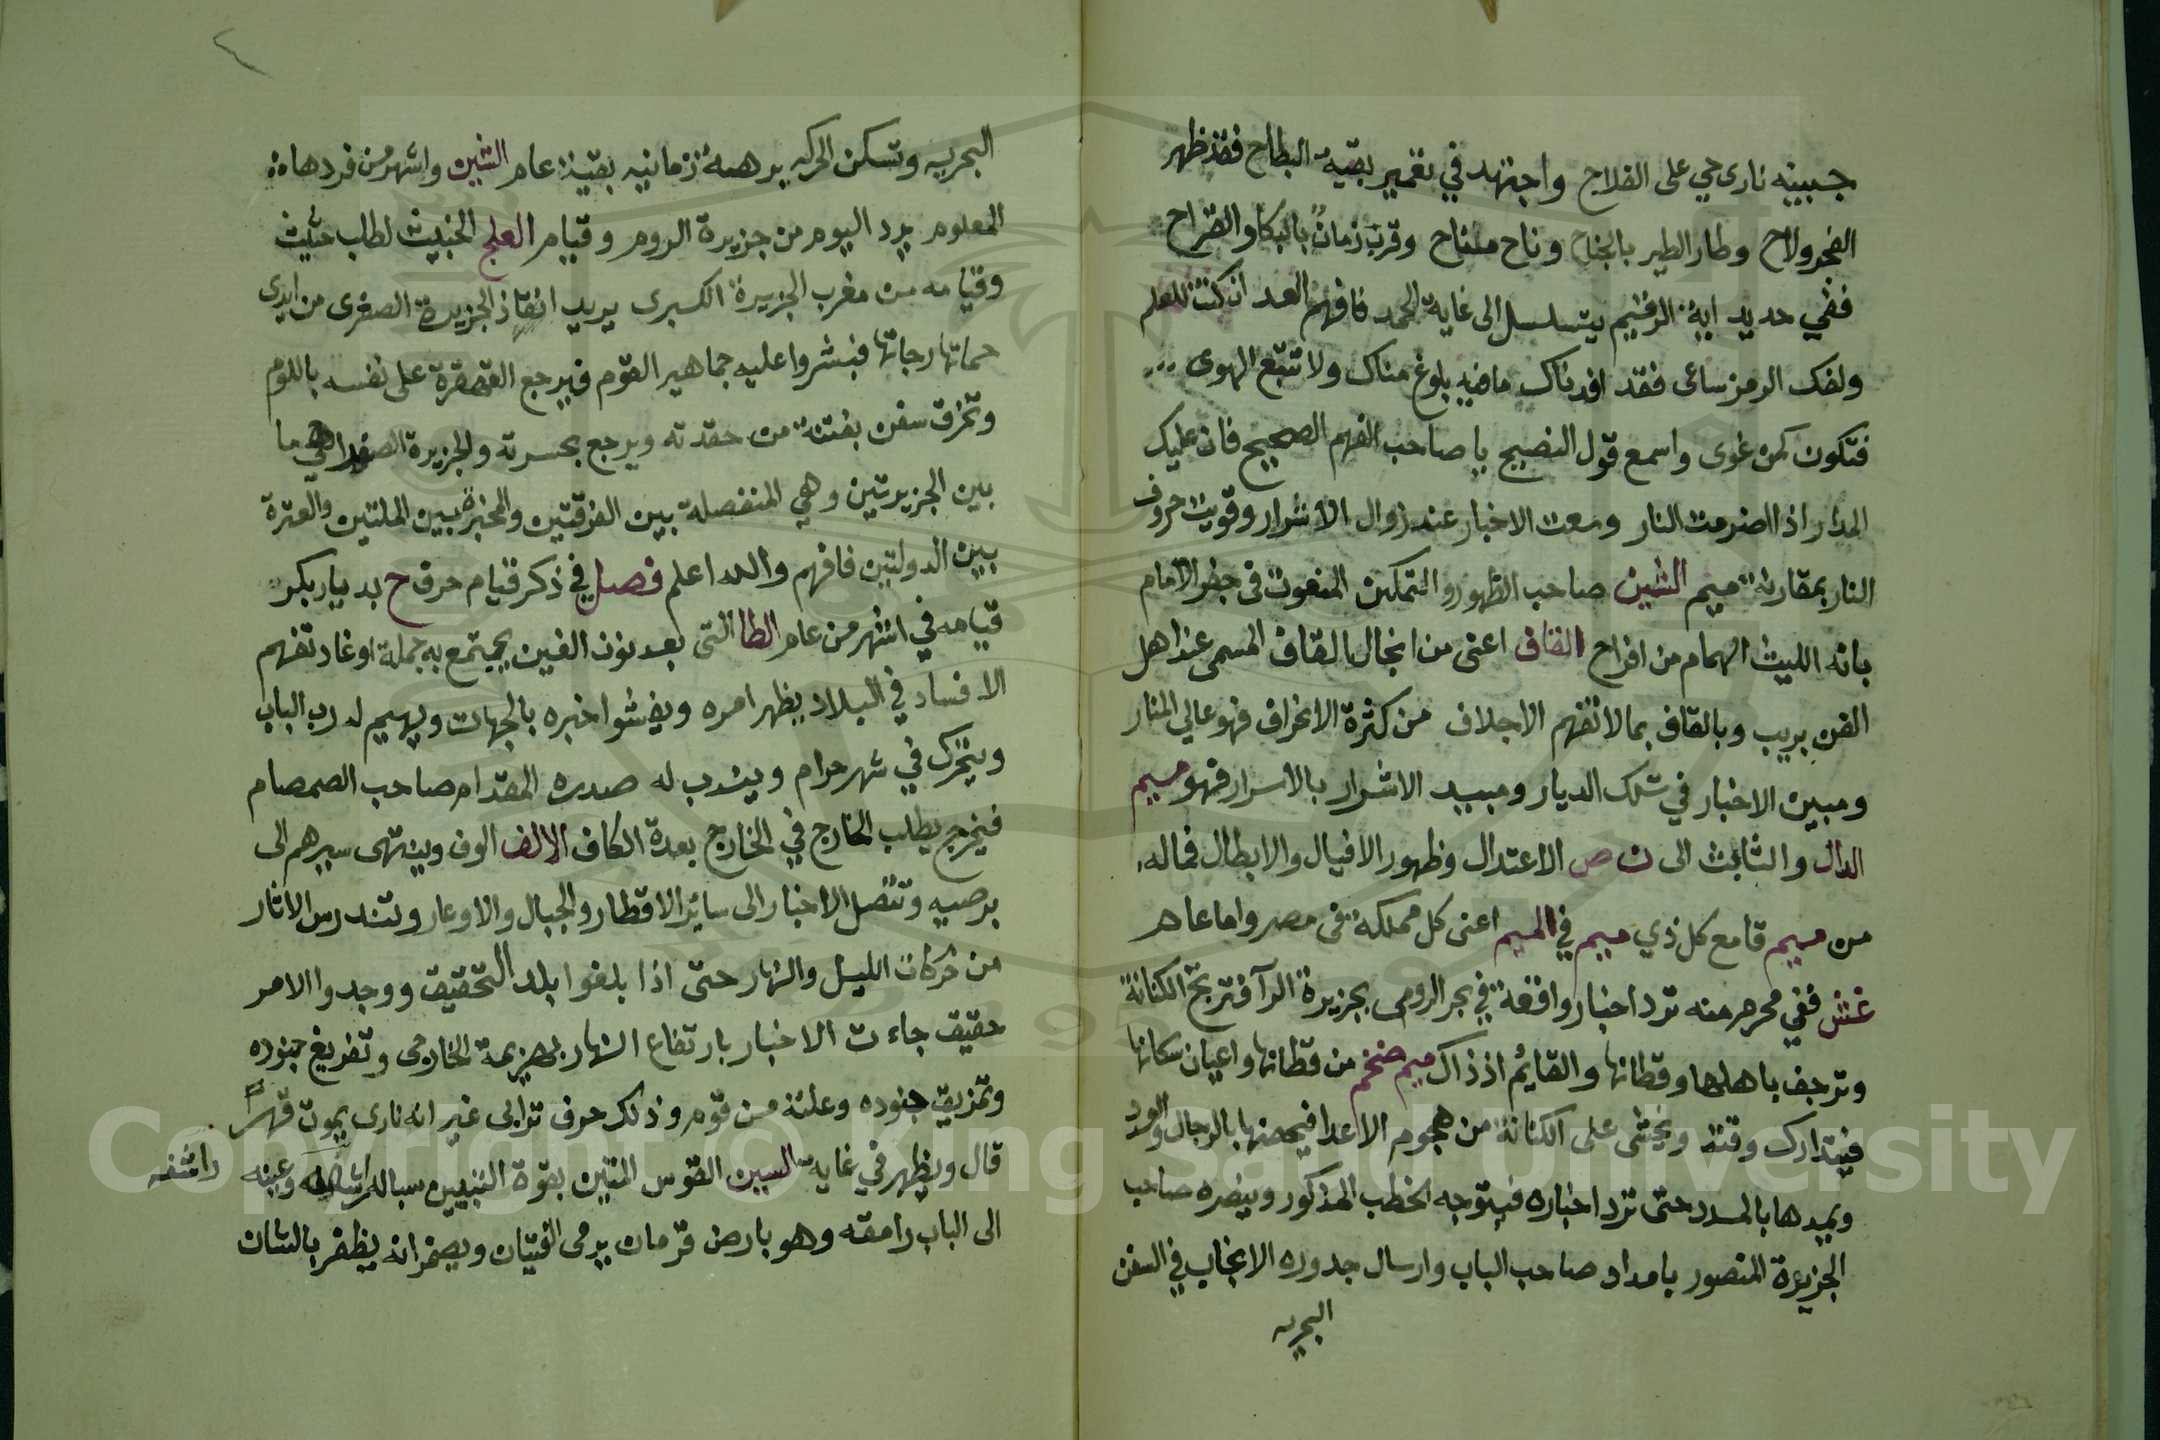 جبينه نادى حي على الفلاح واجتهد في تعمير بقية البطاح فقد ظهر
الفجر ولاح وطار الطير بالجناح وناح مناح وقرب زمان بالبكا والصراح
ففي حديد اية الرقيم يتسلسل الى غاية الحمد فافهم العد ان كنت للعلم
ولفك الرمز ساعى فقد افدناك ما فيه بلوغ مناك ولا تتبع الهوى
فتكون كمن غوى واسمع قول النصيح يا صاحب الفهم الصحيح فان عليك
المدار اذا اضرمت النار وسعت الاخبار عند زوال الاشرار وقويت حروف
النار بمقارنة ميم الشين صاحب الظهور والتمكين المنعوت في جفر الامام
بانه الليث الهمام من افراح القاف اعنى من انجال بالقاف المسمى عند اهل
الفن بريب وبالقاف بما لا تفهم الاجلاف من كثرة الانحراف فهو عالي المنار
ومبين الاخبار في تلك الديار ومبيد الاشرار بالاسرار فهو ميم
الدال والثابت الى ن ص الاعتدال وظهور الافيال والابطال فماله
من ميم قامع كل ذي ميم في الميم اعنى كل مملكة في مصر واما عاهر
غش ففي محرم منه ترد اخبار واقعة في بحر الرومى بجزيرة الرآ فترتج الكنانة
وترجف باهلها وقطانها والقايم اذ ذاك ميم ضخم من قطانها واعيان سكانها
فيتدارك وقته ويخشى على الكنانة من هجوم الاعدا فيحصنها بالرجال والعدد
ويمدها بالمدد حتى ترد اخباره فيتوجه الخطب المذكور وينصره صاحب
الجزيرة المنصور بامداد صاحب الباب وارسال جدوده الانجاب في السفن
البحريه
البحريه وتسكن الحركه برهة زمانيه بقية عام الشين واشهر من فردها
المعلوم يرد اليوم من جزيرة الروم وقيام العلج الخبيث لطلب حثيث
وقيامه من مغرب الجزيرة الكبرى يريد انقاذ الجزيرة الصغرى من ايدى
حماتها رجاتها فبشروا عليه جماهير القوم فيرجع القهقرة على نفسه باللوم
وتخرق سفن بفتنة من حقدته ويرجع بحسرته والجزيرة الصغرا هي ما
بين الجزيرتين وهي المنفصلة بين الفرقتين والمخبرة بين الملتين والعترة
بين الدولتين فافهم والله اعلم فصل في ذكر قيام حرف ح بديار بكر
قيامه في اشهر من عام الطا التى بعد نون الغين يجتمع به جملة اوغاد تفهم
الافساد في البلاد يظهر امره ويفشوا خبره بالجهات ويهيم له رب الباب
ويتحرك في شهر حرام ويندب له صدره المقدام صاحب الصمصام
فيخرج يطلب الخارج في الخارج بعدة الكاف الالف الوف وينتهى سيرهم الى
برصيه وتتصل الاخبار الى سائر الاقطار والجبال والاوعار وتندرس الاثار
من حركات الليل والنهار حتى اذا بلغوا بلد التحقيق ووجدوا الامر
حقيق جاءت الاخبار بارتفاع النهار بهزيمة الخارجى وتفريغ جنوده
وتمزيق جنوده وعلته من قوم وذلك حرف ترابى غير انه نارى يموت قهرا
قال ويظهر في غاية السين القوس المتين بقوة النبيين سباله شاطه وعينه
دامغه
الى الباب رامقه وهو بارض قرمان يرمى الفتيان ويصفر انه يظفر بالشان
Copyright © King Saud University